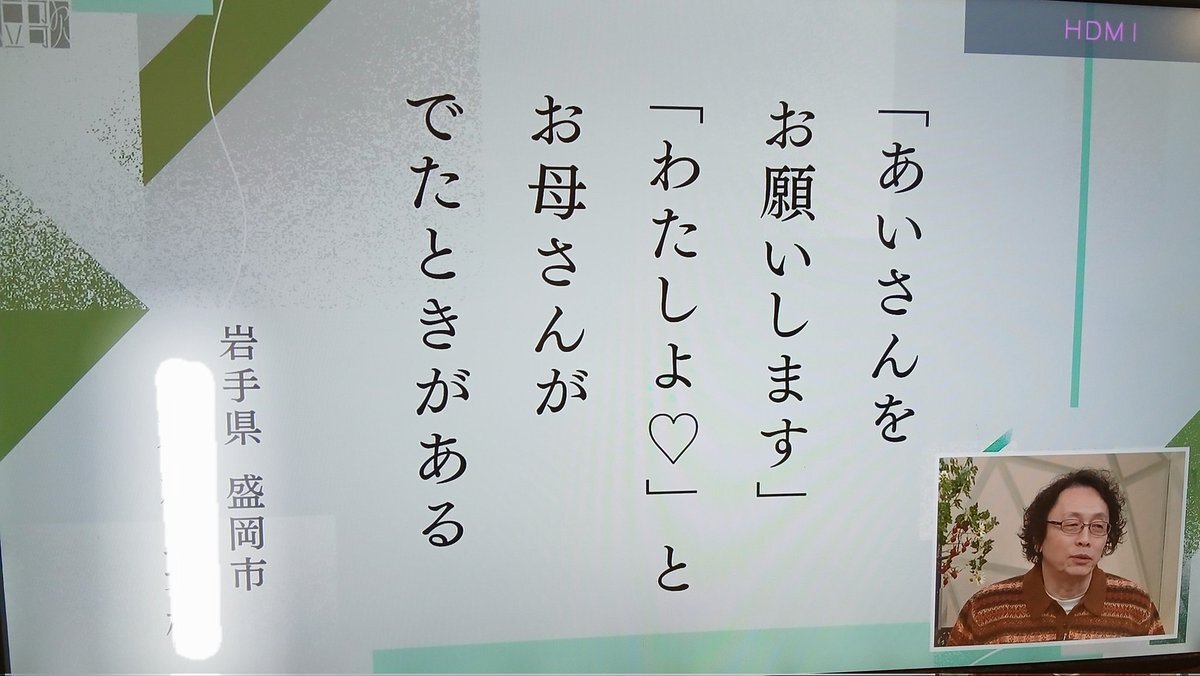 HDMI
「あいさんを
お願いします」
「わたしよ♡」と
お母さんが
でたときがある
岩手県 盛岡市